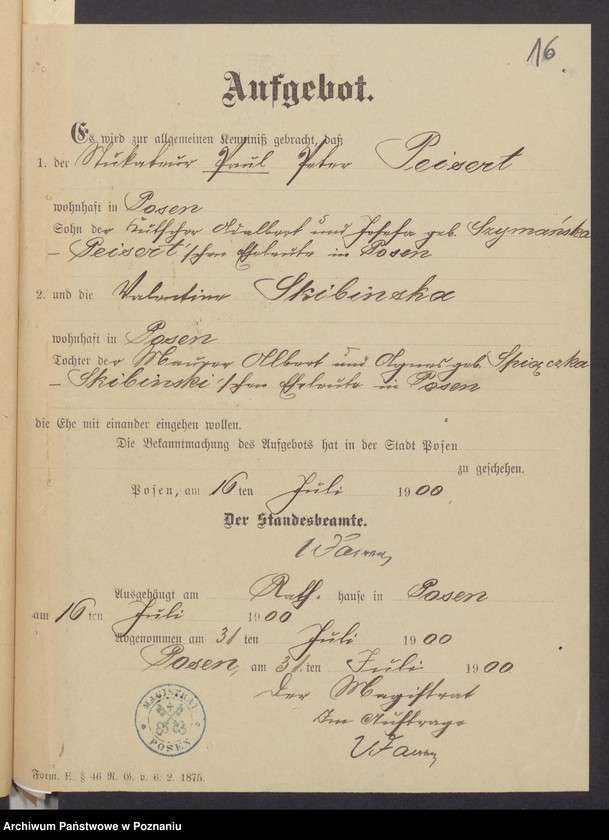 16
Aufgebot.
Es wird zur allgemeinen Kenntniß gebracht, daß
1. der Stukateur Paul Peter Peisert
wohnhaft in Posen
Sohn der Kutscher Adalbert und Josefa geb. Szymańska
– Peisert'schen Eheleute in Posen
2. und die Valentine Skibinska
wohnhaft in Posen
Tochter der Maurer Albert und Agnes geb. Spiączka
– Skibinski'schen Eheleute in Posen
die Ehe mit einander eingehen wollen.
Die Bekanntmachung des Aufgebots hat in der Stadt Posen
zu geschehen.
Posen, am 16 ten Juli 1900
Der Standesbeamte.
Ausgehängt am Rath. hause in Posen
am 16 ten Juli 1900
Abgenommen am 31 ten Juli 1900
Posen, am 31. ten Juli 1900
Der Magistrat
Im Auftrage
MAGISTRAT
POSEN
Form. E. § 46 R. G. v. 6. 2. 1875.
Archiwum Państwowe w Poznaniu